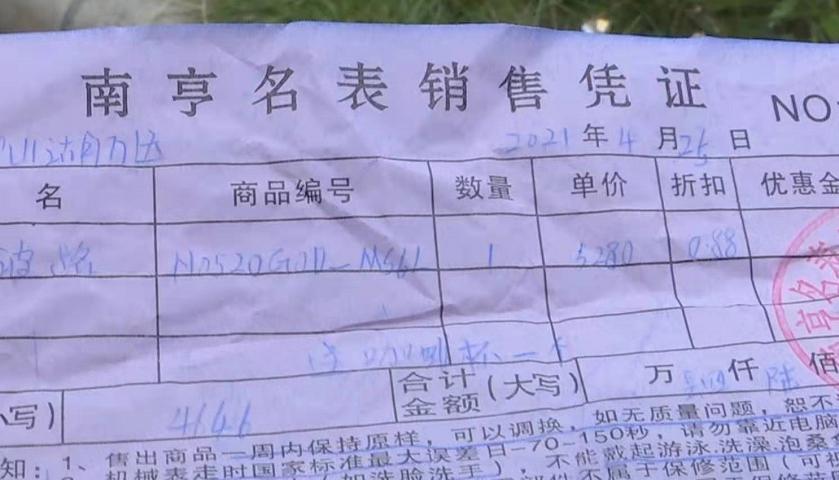 南亨名表销售凭证 NO
2021年4月25日
名 商品编号 数量 单价 折扣 优惠金
1 5280 0.88
送咖啡杯一个
合计金额(大写) 万 肆仟 陆佰
小写) 4646
知:1、售出商品一周内保持原样,可以调换,如无质量问题,恕不
机械表走时国家标准最大误差日-70-150秒,请勿靠近电脑
(如洗脸洗手),不能戴起游泳.洗澡.泡桑
不属于保修范围(可